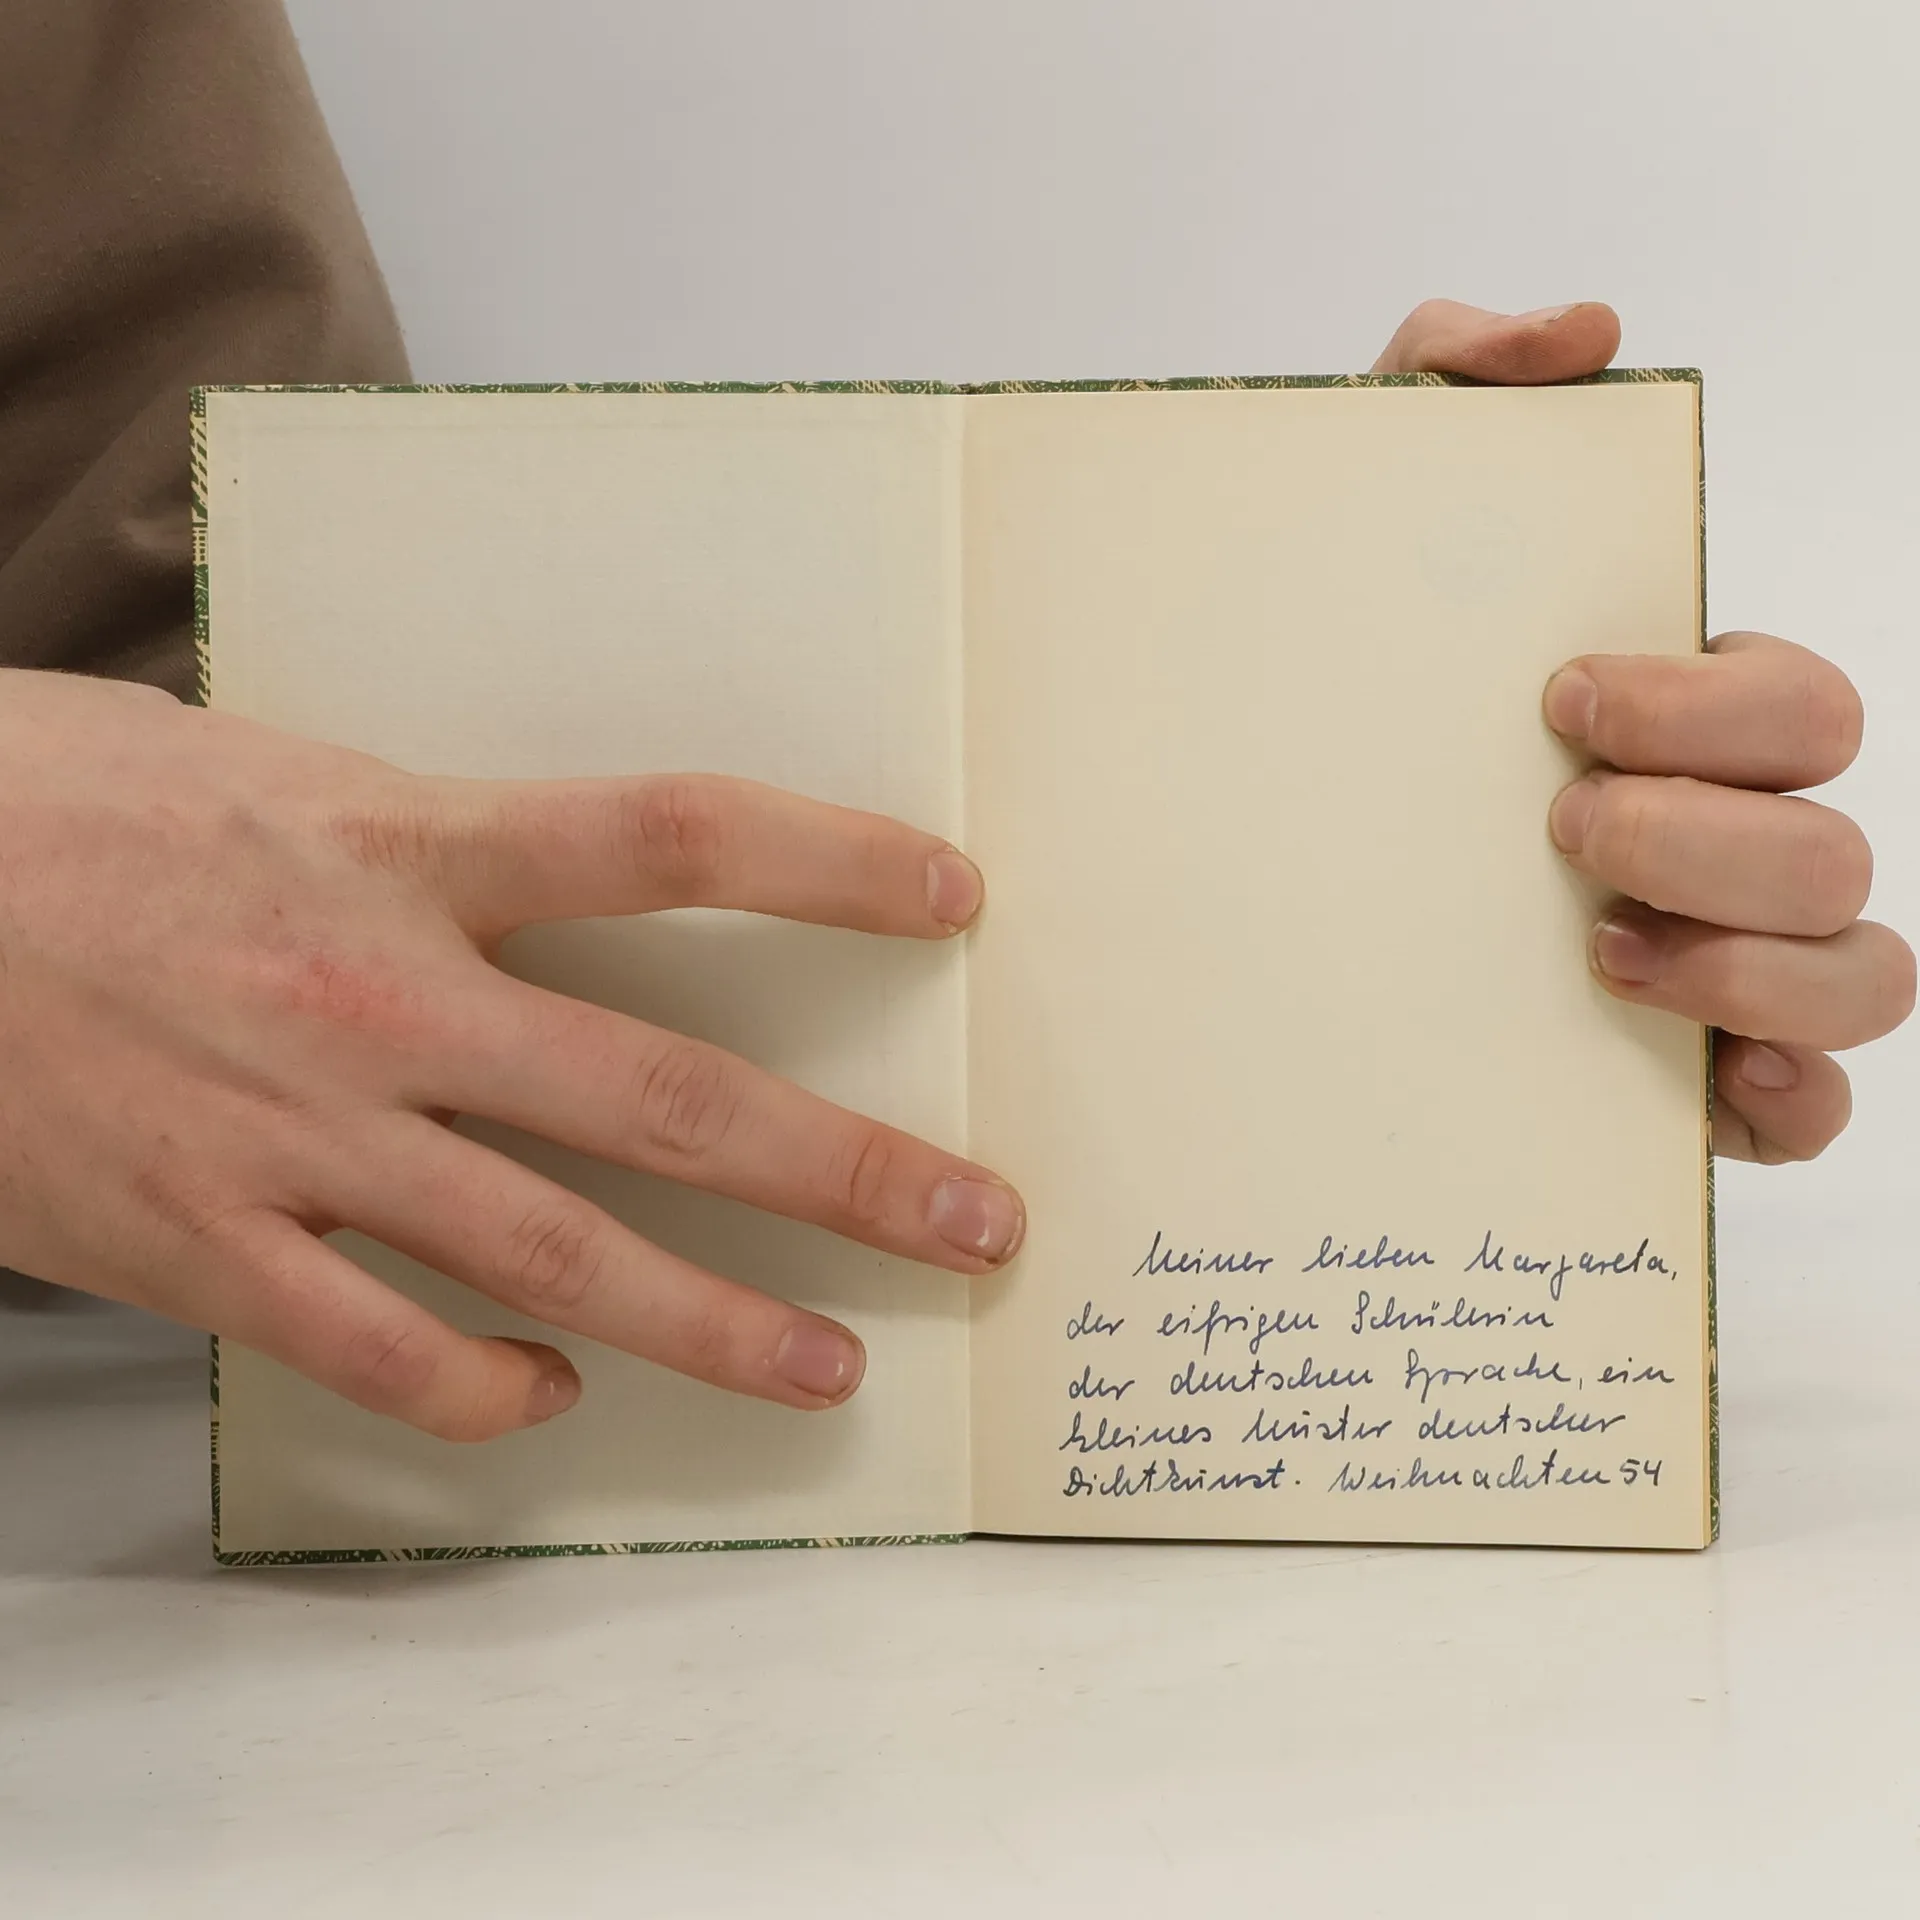 Meiner lieben Margareta,
der eifrigen Schülerin
der deutschen Sprache, ein
kleines Muster deutscher
Dichtkunst. Weihnachten 54